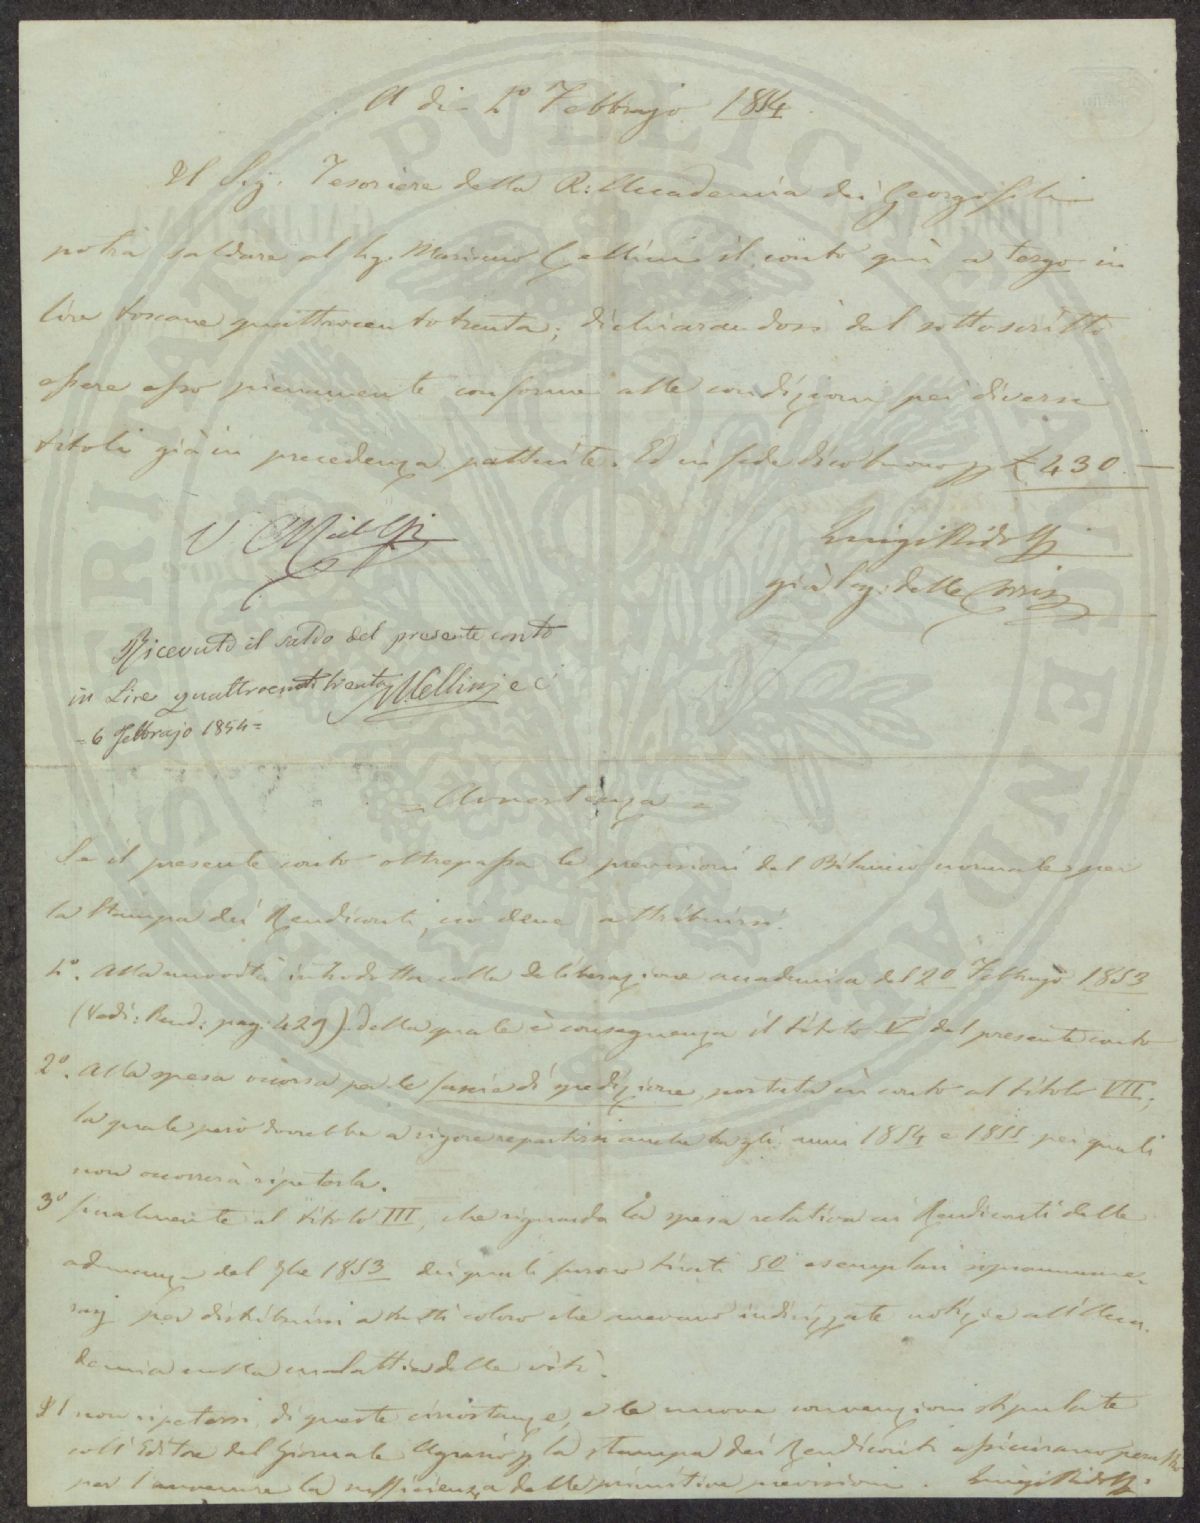 A dì 1º Febbrajo 1854.
Il Sig. Tesoriere della R: Accademia dei Georgofili
potrà saldare al Sig. Mariano Cellini il conto qui a tergo in
lire toscane quattrocentotrenta; dichiarandosi dal sottoscritto
essere esso pienamente conforme alle condizioni per diversi
titoli già in precedenza pattuite. Ed in fede dico buono p £ 430 —
V.
Luigi Ridolfi
già Seg: delle Corrisp
Ricevuto il saldo del presente conto
in Lire quattrocento trenta MCellini e C
= 6 Febbrajo 1854 =
= Avvertenza =
Se il presente conto oltrepassa le previsioni del Bilancio normale per
la Stampa dei Rendiconti, ciò deve attribuirsi.
1º. Alla novità introdotta colla deliberazione accademica del 20 Febbrajo 1853
(Vedi: Rend: pag: 429). Della quale è conseguenza il titolo V del presente conto
2º. Alla spesa occorsa per le fascie di spedizione, portata in conto al titolo VII;
la quale però dovrebbe a rigore repartirsi anche tragli anni 1854 e 1855 pei quali
non occorrerà ripeterla.
3º finalmente al titolo III, che riguarda la spesa relativa ai Rendiconti delle
adunanze del 9bre 1853 dei quali furono tirati 50 esemplari soprannume-
rarj per distribuirsi a tutti coloro che avevano indirizzate notizie all'Acca-
demia sulla malattia delle viti.
Il non ripetersi di queste circostanze, e le nuove convenzioni stipulate
coll'Editore del Giornale Agrario p la stampa dei Rendiconti assicurano peraltro
per l'avvenire la sufficienza delle primitive previsioni. Luigi Ridolfi.